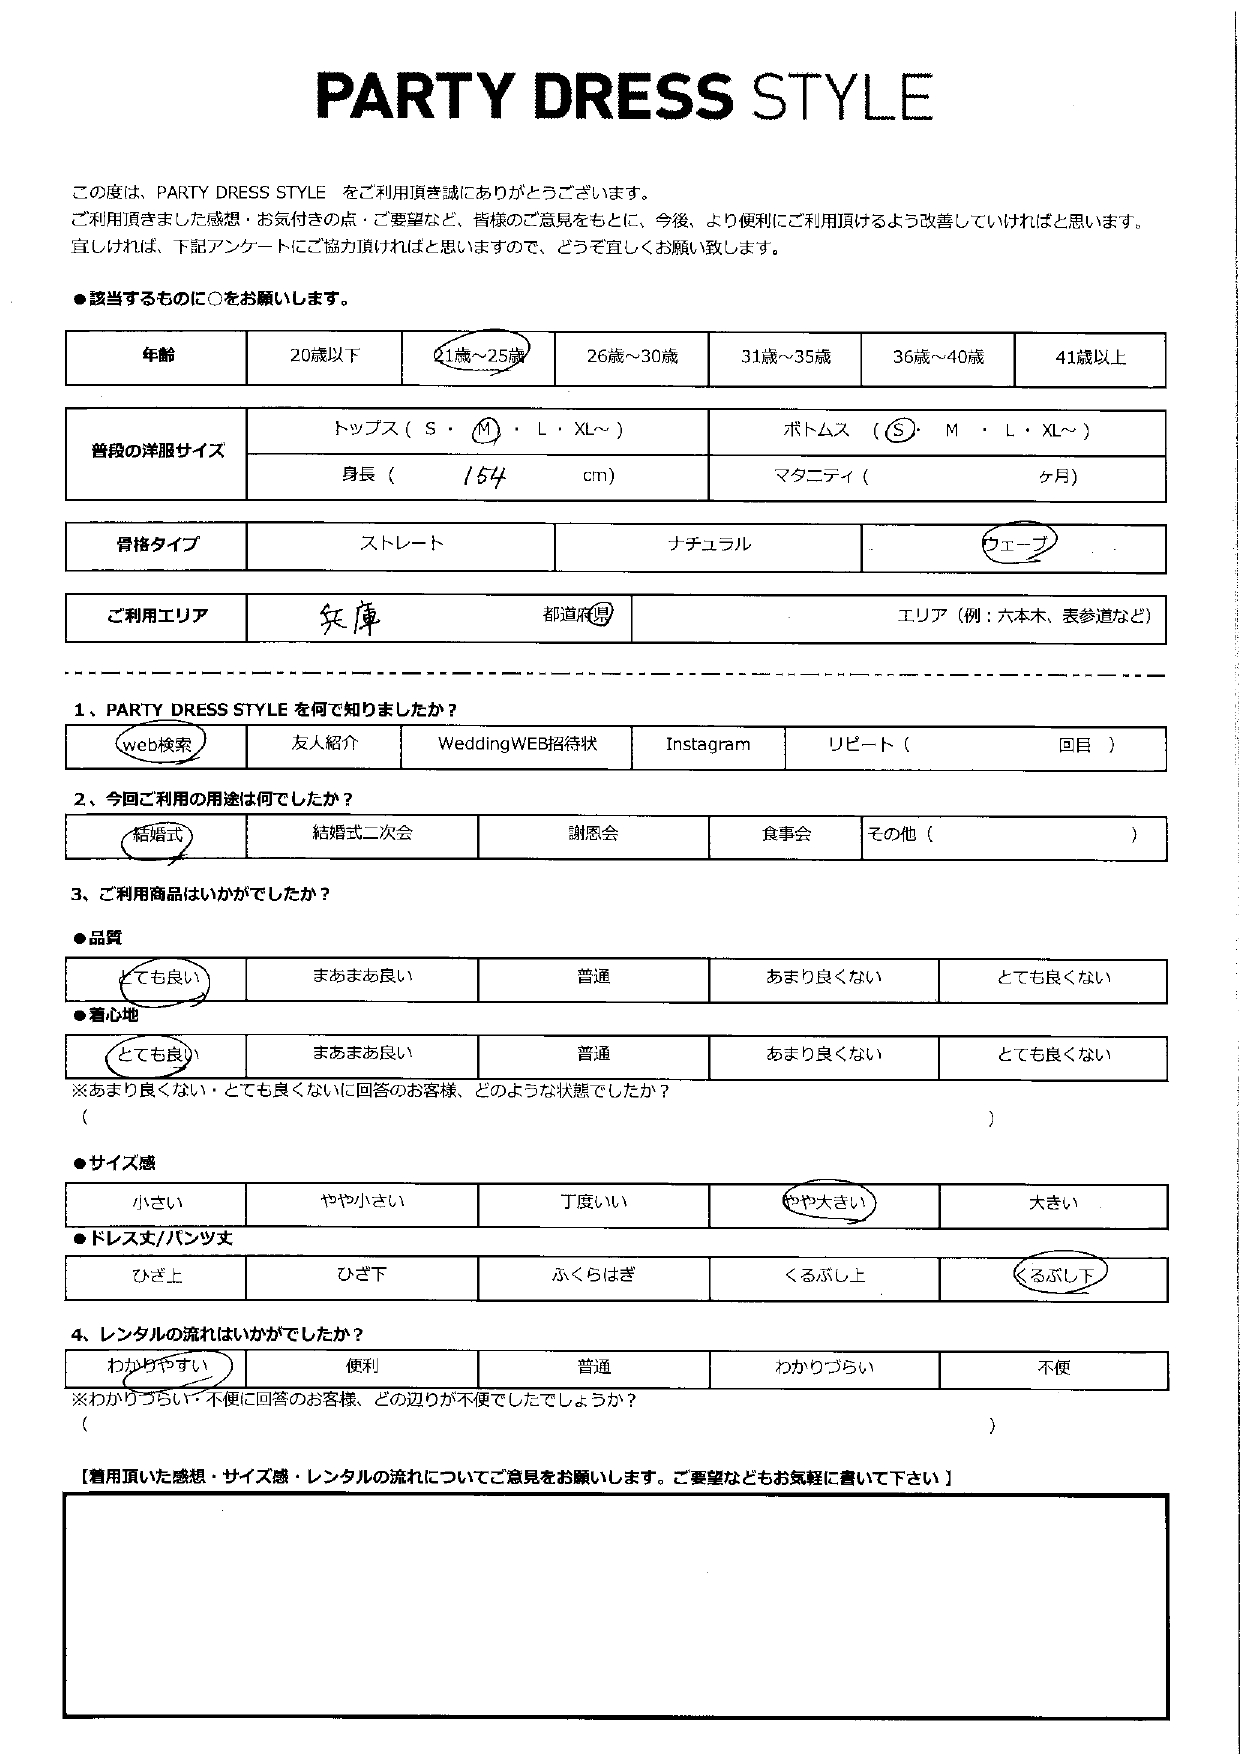 PARTY DRESS STYLE
この度は、PARTY DRESS STYLE　をご利用頂き誠にありがとうございます。
ご利用頂きました感想・お気付きの点・ご要望など、皆様のご意見をもとに、今後、より便利にご利用頂けるよう改善していければと思います。
宜しければ、下記アンケートにご協力頂ければと思いますので、どうぞ宜しくお願い致します。
●該当するものに○をお願いします。
年齢 20歳以下 21歳～25歳 26歳～30歳 31歳～35歳 36歳～40歳 41歳以上
普段の洋服サイズ トップス ( S ・ M ・ L ・ XL～ ) ボトムス ( S ・ M ・ L ・ XL～ )
身長 ( 154 cm) マタニティ ( ヶ月)
骨格タイプ ストレート ナチュラル ウェーブ
ご利用エリア 兵庫 都道府県 エリア（例：六本木、表参道など）
1、PARTY DRESS STYLE を何で知りましたか？
web検索 友人紹介 WeddingWEB招待状 Instagram リピート ( 回目 )
2、今回ご利用の用途は何でしたか？
結婚式 結婚式二次会 謝恩会 食事会 その他 ( )
3、ご利用商品はいかがでしたか？
●品質
とても良い まあまあ良い 普通 あまり良くない とても良くない
●着心地
とても良い まあまあ良い 普通 あまり良くない とても良くない
※あまり良くない・とても良くないに回答のお客様、どのような状態でしたか？
( )
●サイズ感
小さい やや小さい 丁度いい やや大きい 大きい
●ドレス丈/パンツ丈
ひざ上 ひざ下 ふくらはぎ くるぶし上 くるぶし下
4、レンタルの流れはいかがでしたか？
わかりやすい 便利 普通 わかりづらい 不便
※わかりづらい・不便に回答のお客様、どの辺りが不便でしたでしょうか？
( )
【着用頂いた感想・サイズ感・レンタルの流れについてご意見をお願いします。ご要望などもお気軽に書いて下さい 】